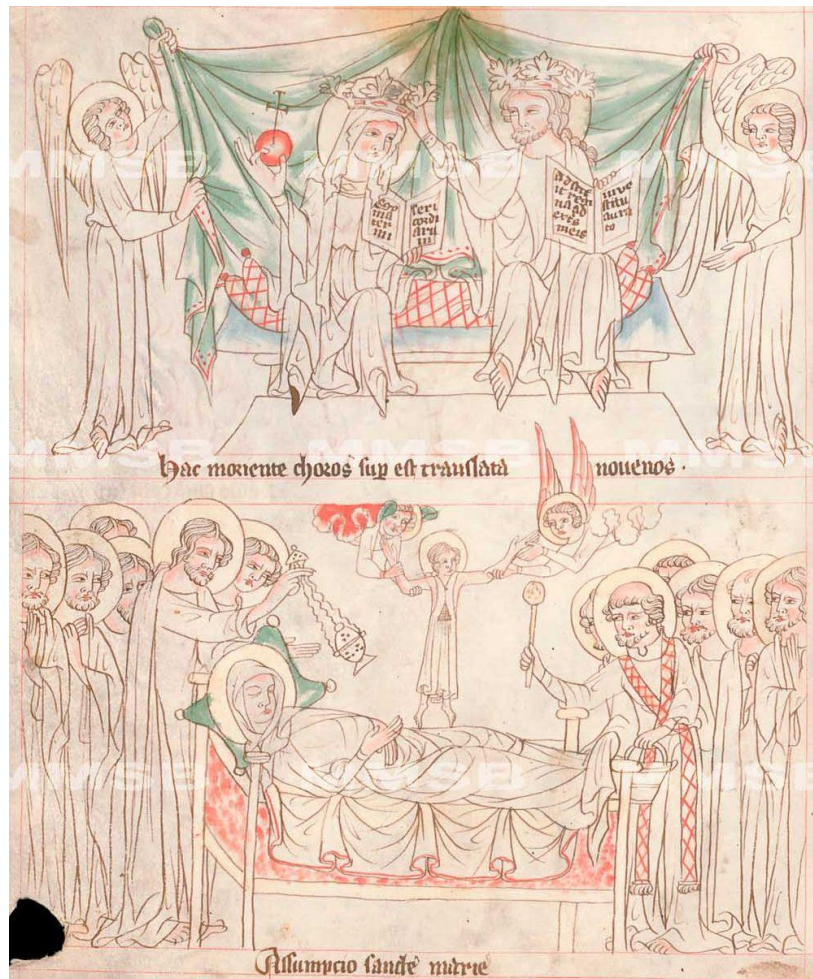 Ego
ma
ter
mi
seri
cordi
aru
m
adstet
it regi
na ad
extris
meis
in ve
stitu
aura
to
hac moriente choros sup est translata nouenos ·
Assumpcio sancte marie